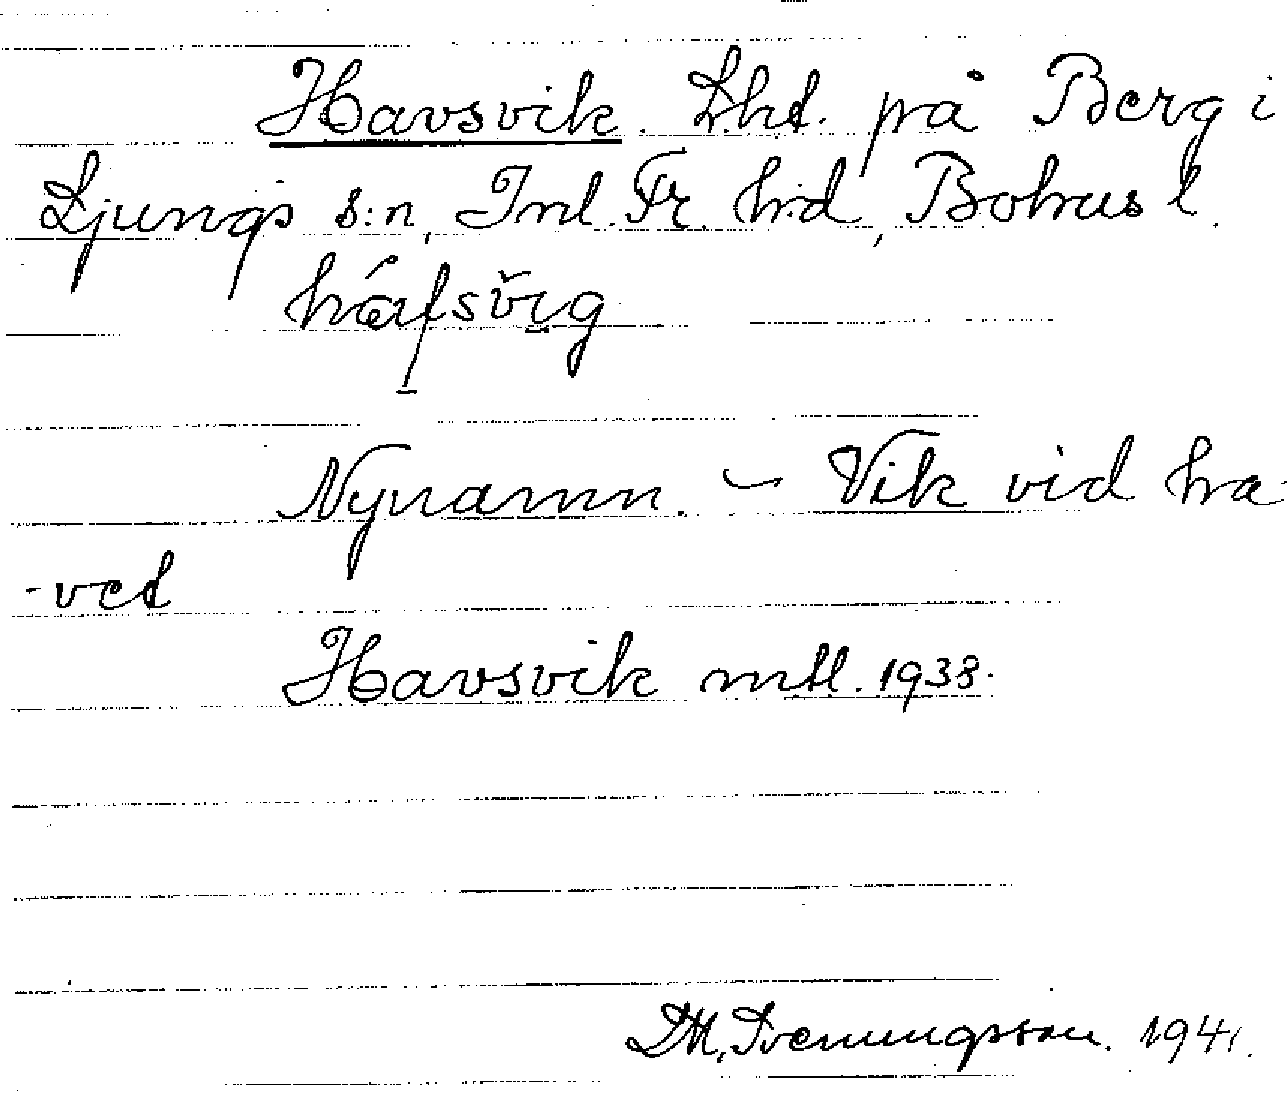 Havsvik. Lht. på Berg i
Ljungs s:n, Inl. Fr. hd, Bohus l.
Nynamn. – Vik vid ha-
-vet
Havsvik mtl. 1938.
D.M. Svenungsson. 1941.